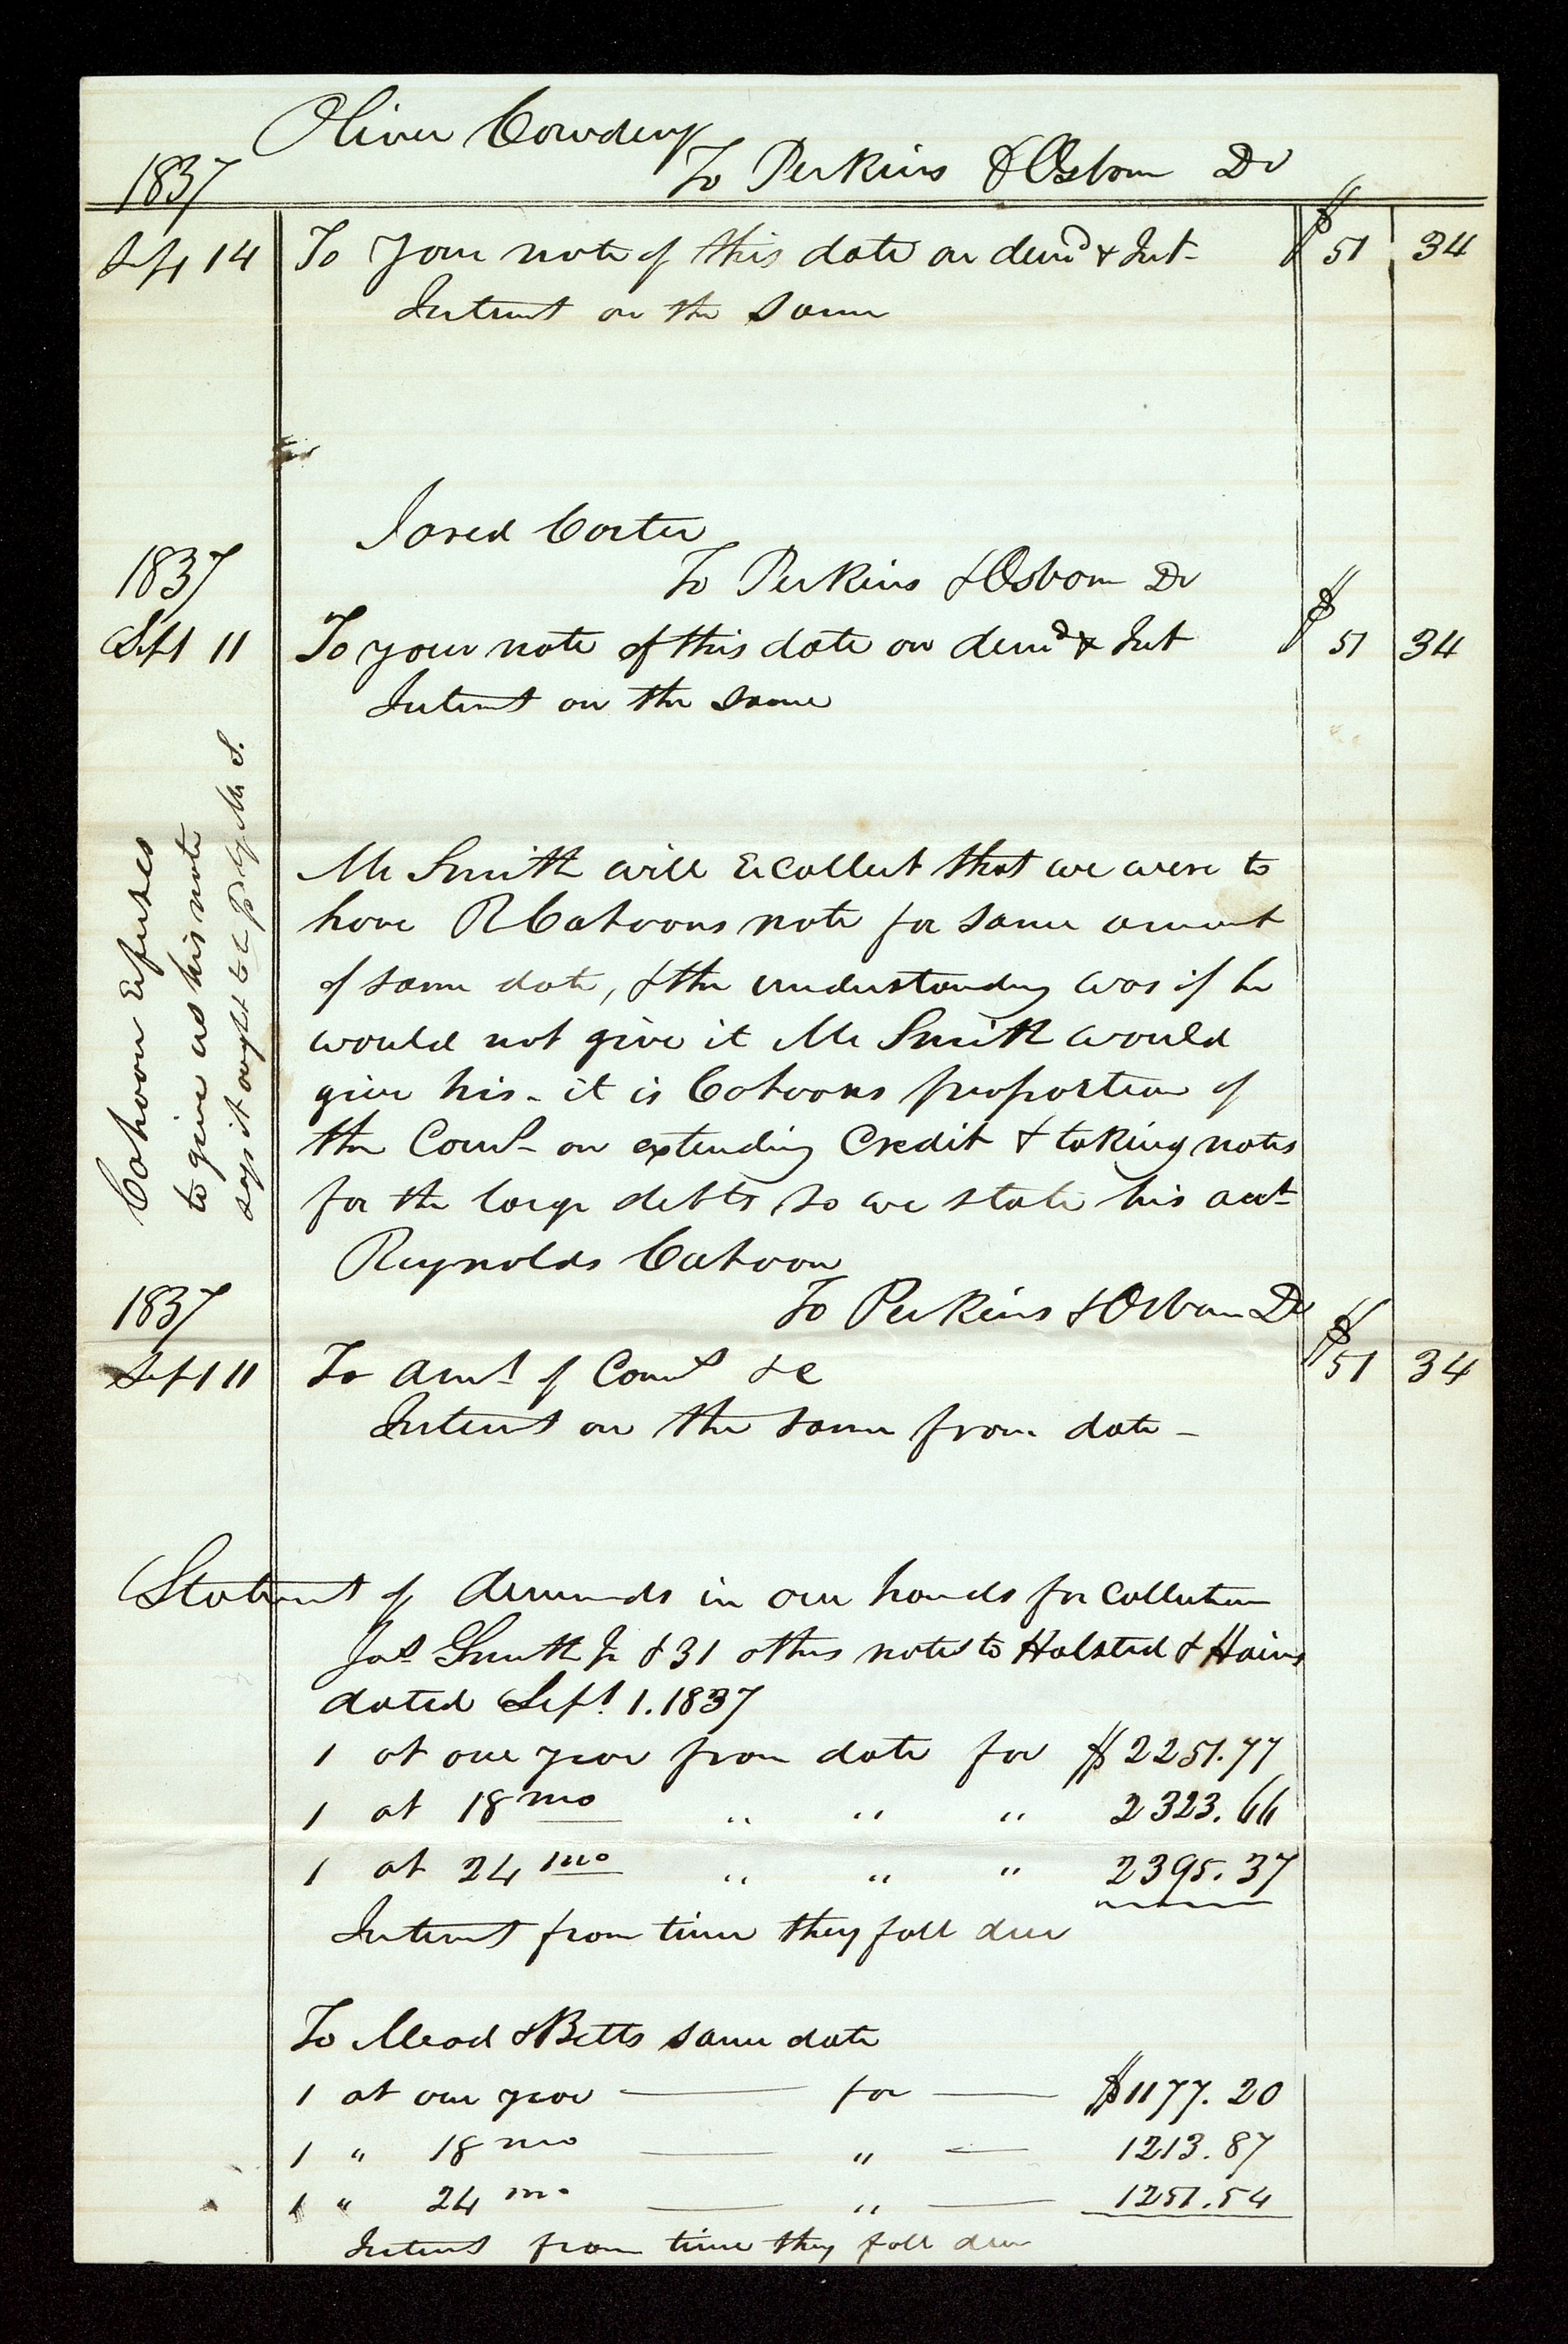 Oliver Cowdery
1837 To Perkins & Osborn Dr
Sept 14 To your note of this date on demd & Int- $ 51 34
Interest on the same
Jared Carter
1837 To Perkins & Osborn Dr
Sept 11 To your note of this date on demd & Int $ 51 34
Interest on the same
Cahoon Refuses
to give us his note
says it ought to be pd by Mr S.
Mr Smith will Recollect that we were to
have R Cahoons note for same amount
of same date, & the understanding was if he
would not give it Mr Smith would
give his - it is Cahoons proportion of
the Coms- on extending Credit & taking notes
for the large debts, so we state his act-
Reynolds Cahoon
1837 To Perkins & Osborn Dr
Sept 11 To Amt of Coms &c $ 51 34
Interest on the same from date -
Statement of demands in our hands for Collection
Jos Smith Jr & 31 others notes to Halsted & Hains
dated Sept. 1. 1837
1 at one year from date for $ 2251.77
1 at 18 mo " " " 2323.66
1 at 24 mo " " " 2395.37
Interest from time they fall due
To Mead & Betts same date
1 at one year — for — $1177.20
1 " 18 mo — " — 1213.87
1 " 24 mo — " — 1251.54
Interest from time they fall due